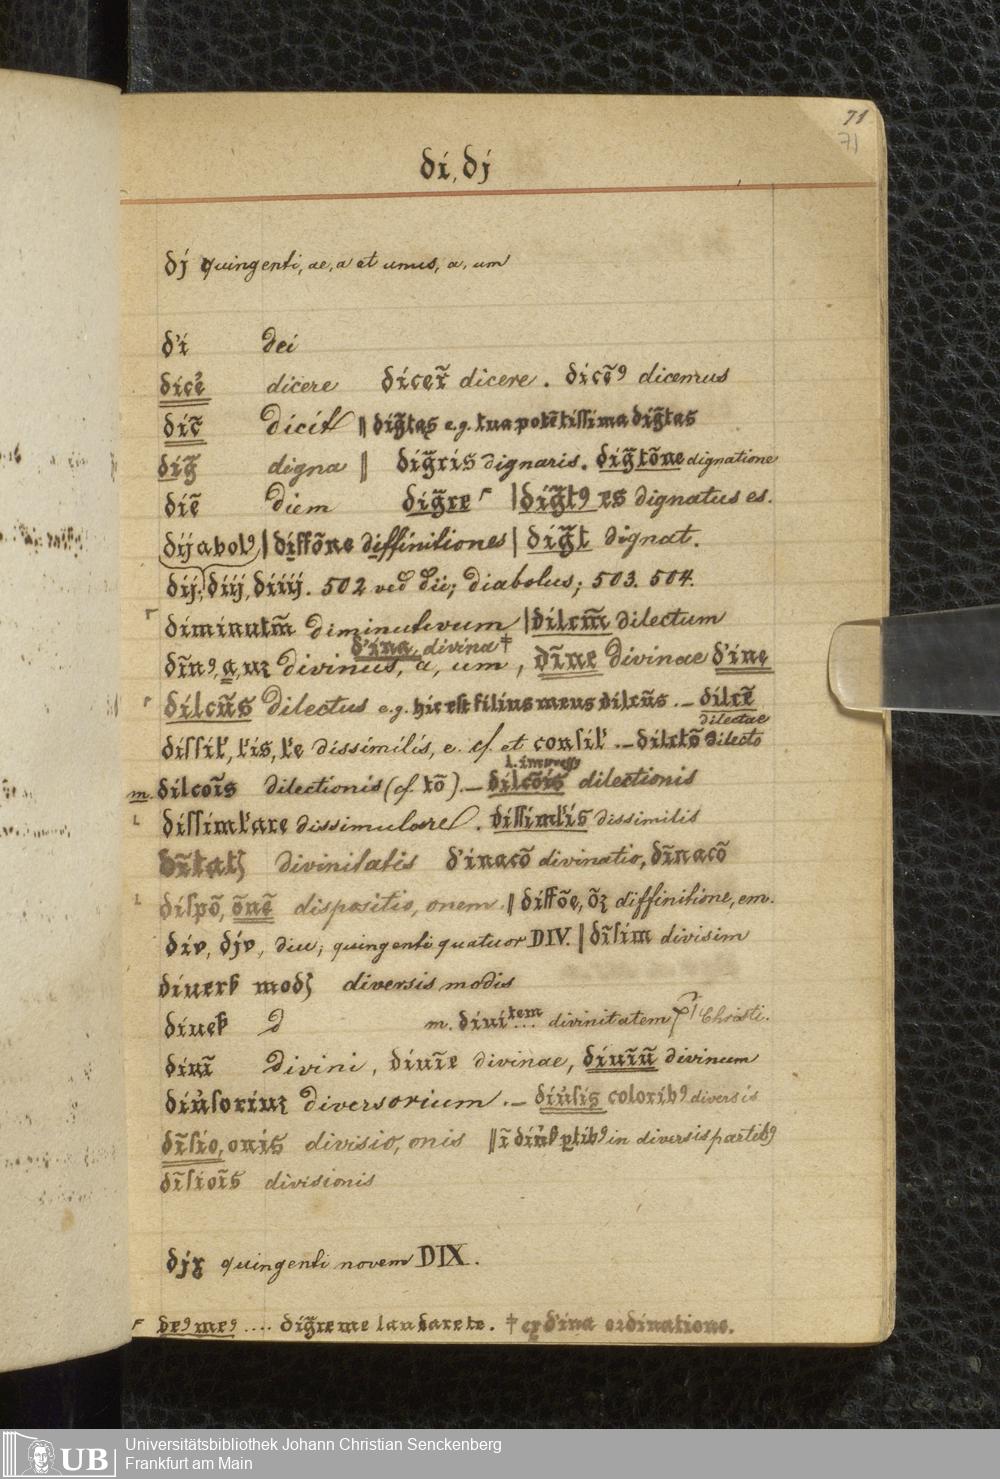 71
71
di, dj
dj quingenti, ae, a et unus, a, um
d'i dei
dicere dicere . dicemus
dic̄ Dicit || dig̃tas e.g. tua potētissima dig̃tas
dig̃ digna || dig̃ris dignaris. dig̃tōne dignatione
diē Diem dig̃re | dig̃tꝰ es dignatus es.
dijabolꝰ | diffōne diffinitiones | dig̃t dignat.
dij, diij, diiij. 502 vel dii; diabolus; 503. 504.
diminutm̄ Diminutivum | dilcm̄ dilectum
d'ina, divina †
dīnꝰ, a, uꝫ divinus, a, um, dīne Divinae d'ine
dilcūs Dilectus e.g. hic est filius meus dilcūs . – dilcē
dilectae
dissil', l'is, l'e dissimilis, e. cf. et consil' . – dilctō dilecto
m. dilcoīs dilectionis (cf. tō) . – dilcōis dilectionis
dissiml'are dissimulare . dissiml'is dissimilis
divinitatis d'inacō divinatio, dīnacō
dispō, ōnē dispositio, onem || diffōe, ōꝫ diffinitione, em.
div, djv, diu; quingenti quatuor DIV. | dīsim divisim
diversis modis
m. divitem ... divinitatem Christi.
diuī Divini, diuīe divinae, diuīū divinum
Diversorium . – coloribꝰ diversis
dīsio, onis divisio, onis || in diversis partibꝰ
dīsioīs divisionis
djx quingenti novem DIX.
deꝰ meꝰ .... dig̃re me laudare te. † ex d'ina ordinatione.
UB
Universitätsbibliothek Johann Christian Senckenberg
Frankfurt am Main